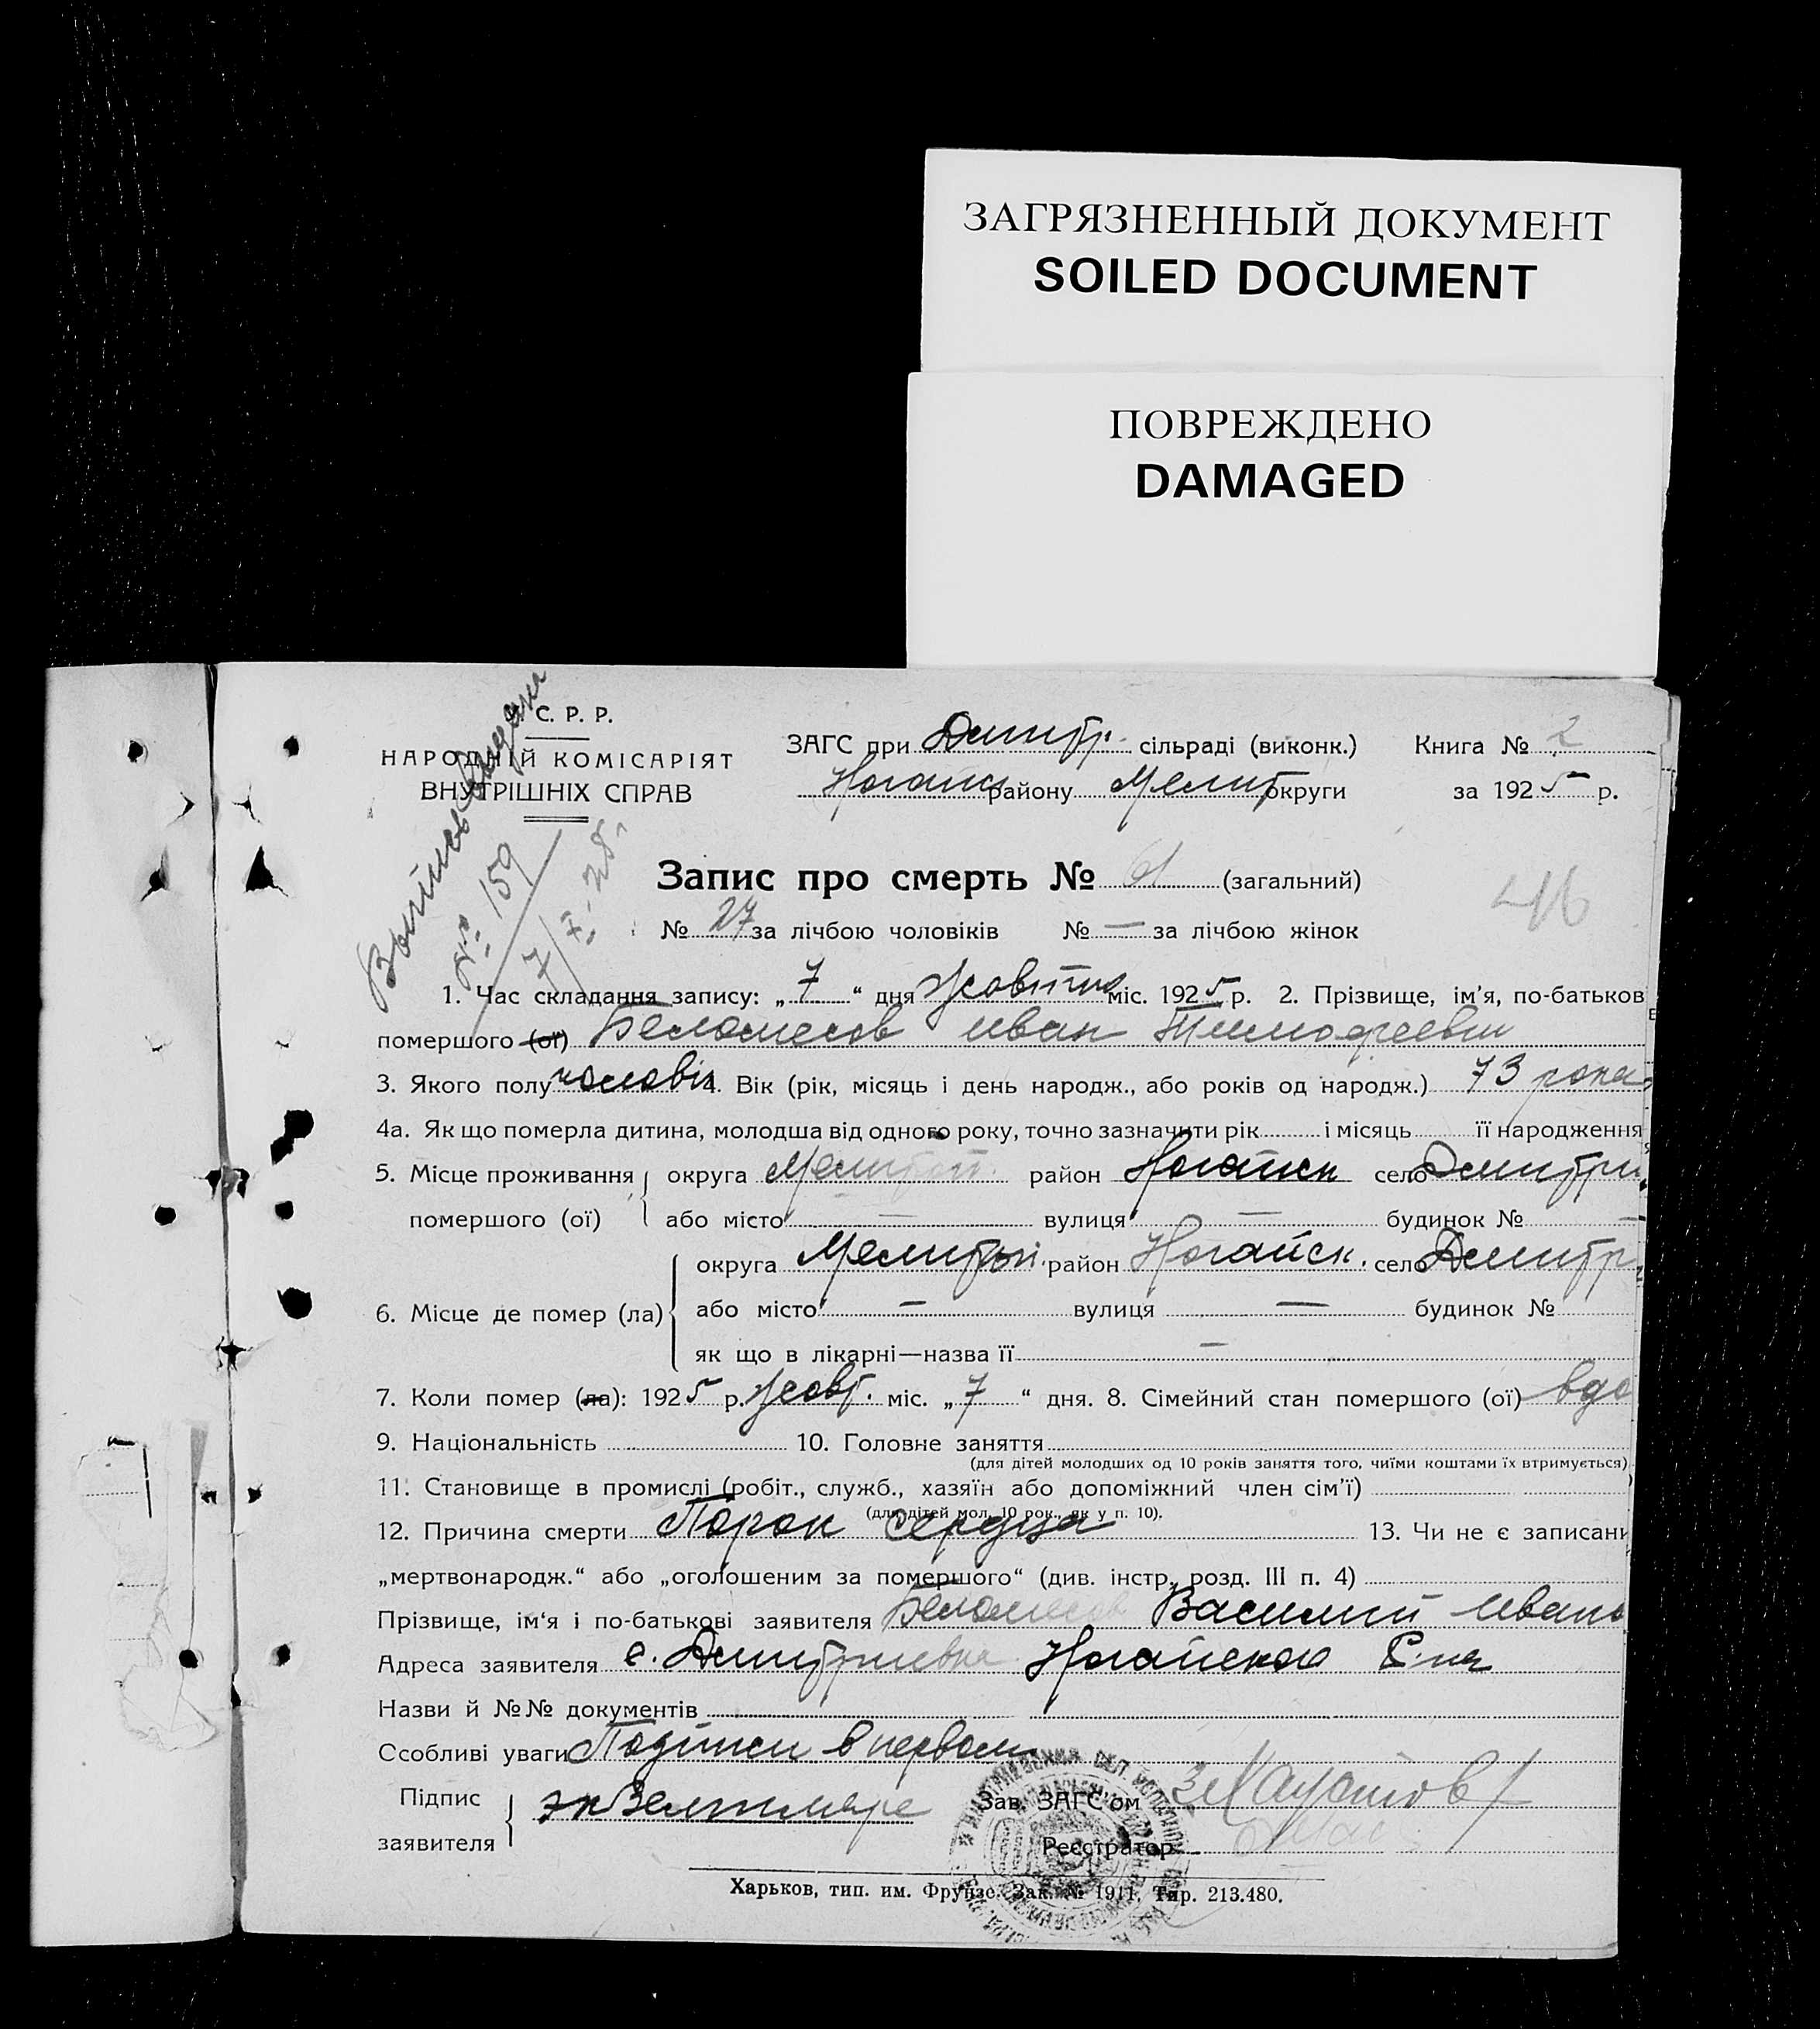 ЗАГРЯЗНЕННЫЙ ДОКУМЕНТ
SOILED DOCUMENT
ПОВРЕЖДЕНО
DAMAGED
У С. Р. Р.
НАРОДНІЙ КОМІСАРІЯТ
ВНУТРІШНІХ СПРАВ
ЗАГС при Дмитр. сільраді (виконк.) Книга № 2
Ногайск району Мелит округи за 1925 р.
№ 159
Запис про смерть № 61 (загальний)
№ 27 за лічбою чоловіків № — за лічбою жінок
416
1. Час складання запису: „7“ дня Жовтня міс. 1925 р. 2. Прізвище, ім’я, по-батьков
помершого (ої) Беломесов Иван Тимофеевич
3. Якого полу чоловіч 4. Вік (рік, місяць і день народж., або років од народж.) 73 рока
4а. Як що померла дитина, молодша від одного року, точно зазначити рік і місяць її народження
5. Місце проживання помершого (ої) округа Мелитоп. район Ногайск село Дмитри
або місто — вулиця — будинок № —
6. Місце де помер (ла) округа Мелитоп. район Ногайск. село Дмитр
або місто — вулиця — будинок №
як що в лікарні—назва її —
7. Коли помер (ла): 1925 р. Жовт. міс. „7“ дня. 8. Сімейний стан помершого (ої) вдо
9. Національність 10. Головне заняття
(для дітей молодших од 10 років заняття того, чиїми коштами їх втримується)
11. Становище в промислі (робіт., служб., хазяїн або допоміжний член сім’ї)
(для дітей мол. 10 рок., як у п. 10).
12. Причина смерти Порок сердца 13. Чи не є записани
„мертвонародж.“ або „оголошеним за помершого“ (див. інстр. розд. III п. 4)
Прізвище, ім‘я і по-батькові заявителя Беломесов Василий Ивано
Адреса заявителя с. Дмитриевка Ногайского
Назви й №№ документів
Ссобливі уваги Подписи в первом
Підпис заявителя экземпляре Зав. ЗАГС’ом
Реєстратор
Харьков, тип. им. Фрунзе. Зак. № 1911. Тир. 213.480.